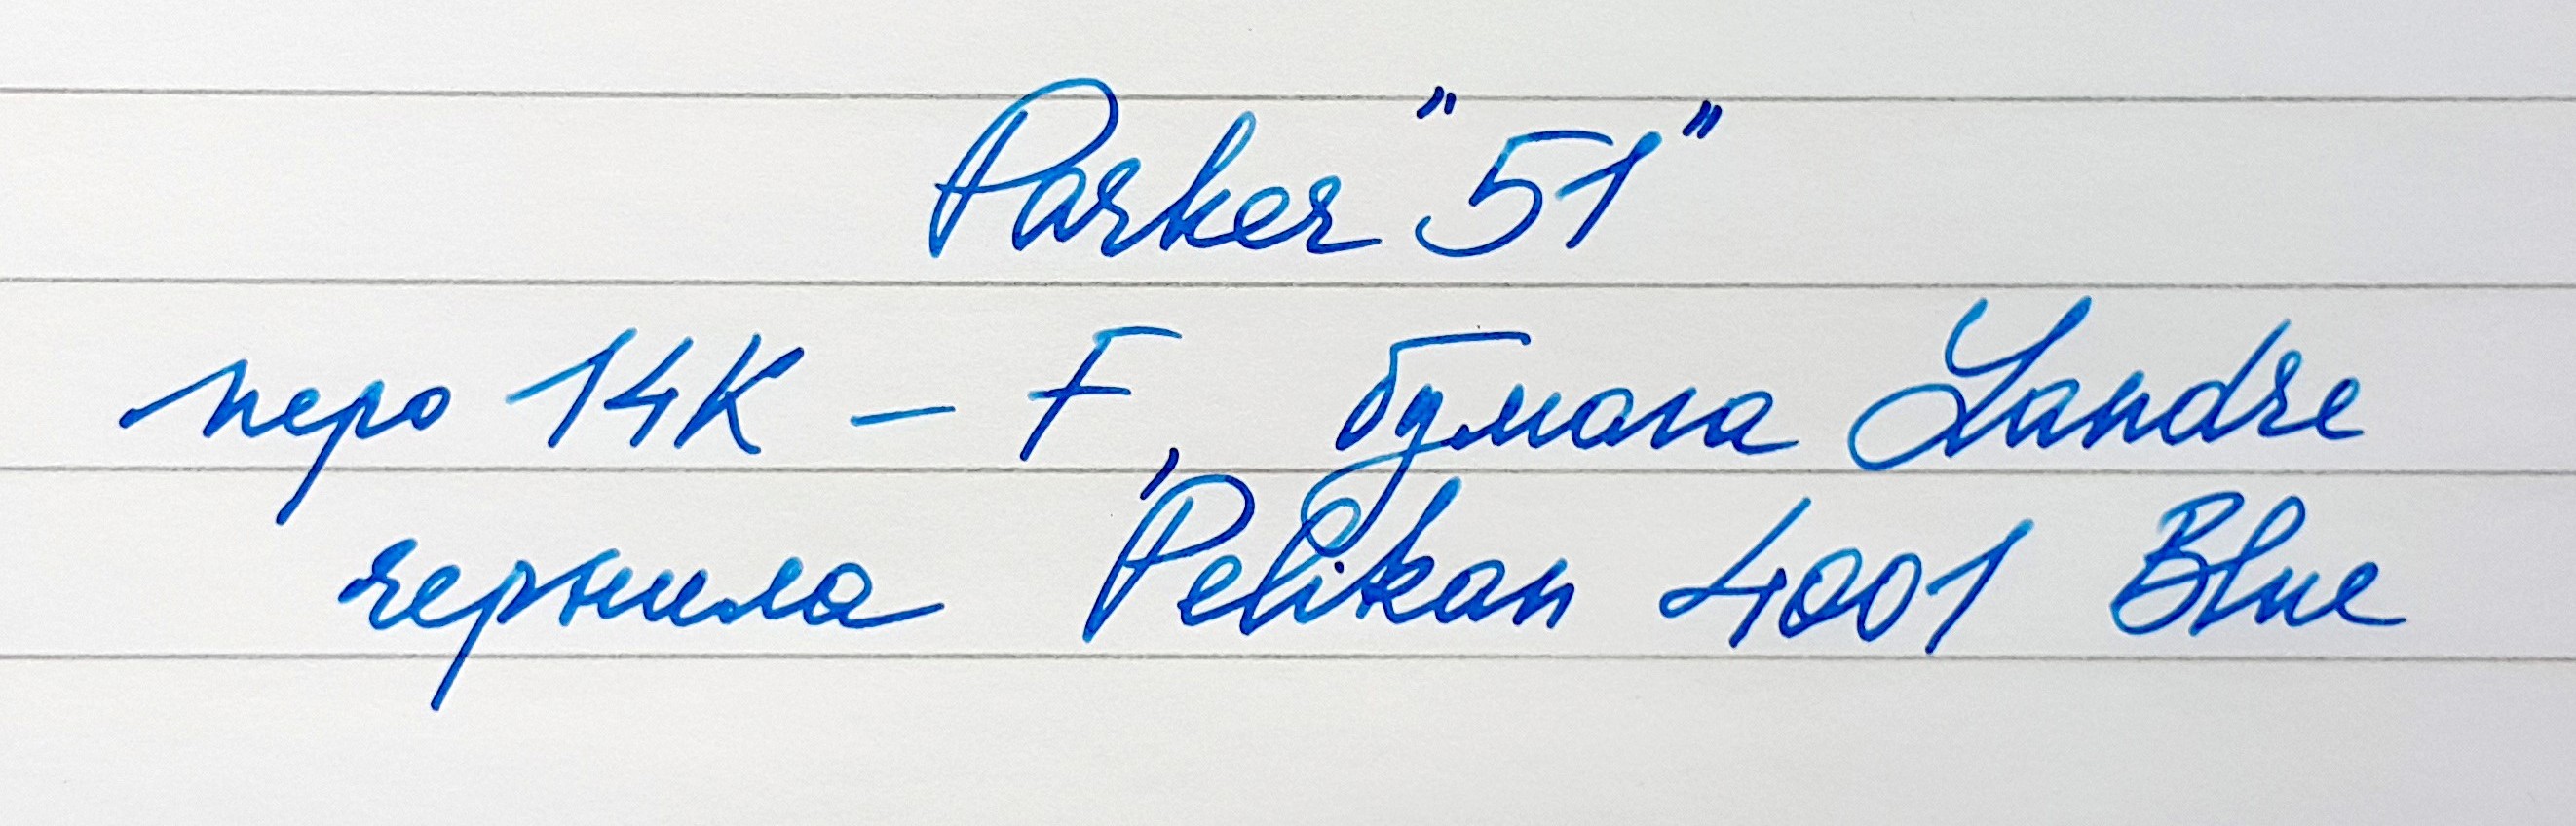 Parker "51"
перо 14K — F, бумага Landre
чернила Pelikan 4001 Blue